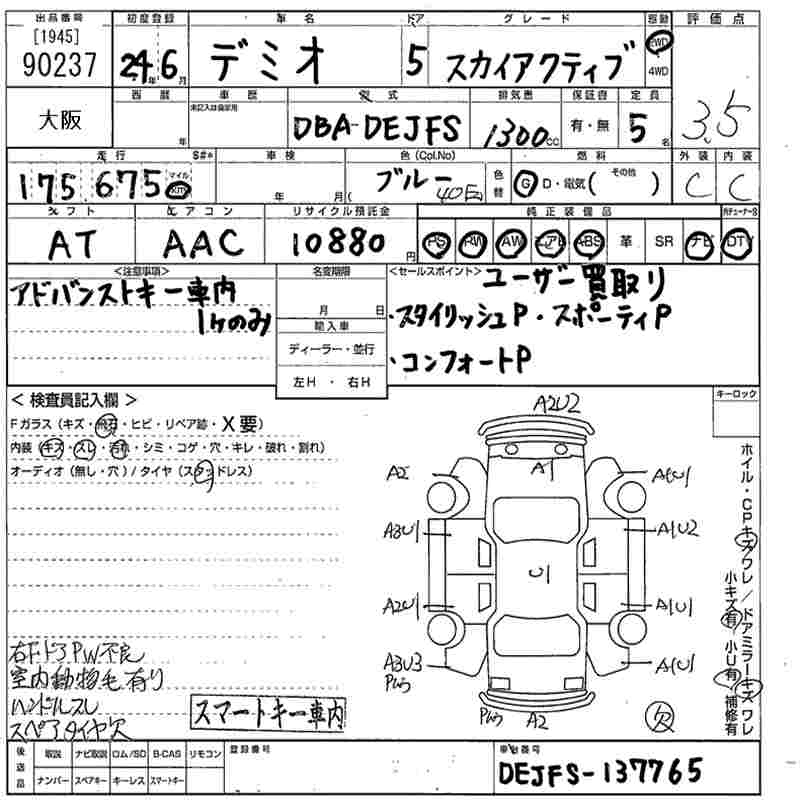 出品番号 初度登録 車名 ドア グレード 駆動 評価点
[1945]
90237 24年6月 デミオ 5 スカイアクティブ 2WD 4WD
3.5
大阪 西暦 年 車歴 未記入は自家用 型式 DBA-DEJFS 排気量 1300cc 保証書 有・無 定員 5名
走行 S#* 車検 色(Col.No) 色替 燃料 外装 内装
175,675 マイル Km 年 月 ブルー 40E G D・電気 (その他) C C
シフト エアコン リサイクル預託金 純正装備品
AT AAC 10880円 PS PW AW エアB ABS 革 SR ナビ DTV
<注意事項> 名変期限 <セールスポイント>
アドバンストキー車内
1ヶのみ
月 日
輸入車
ディーラー・並行
左H ・ 右H
ユーザー買取り
・スタイリッシュP・スポーティP
・コンフォートP
<検査員記入欄> キーロック
Fガラス(キズ・飛石・ヒビ・リペア跡・X要)
内装(キズ・スレ・汚れ・シミ・コゲ・穴・キレ・破れ・割れ)
オーディオ(無し・穴)/タイヤ(スタッドレス)
A2U2
A1
A2 A1U1
A3U1 A1U2
U1
A2U1 A1U1
A3U3 A1U1
Pレ
Pレ A2
欠
ホイル・CPキズワレ/ドアミラーキズワレ
小キズ有 小U有 補修有
右FドアPW不良
室内動物毛有り
ハンドルスレ
スペアタイヤ欠
スマートキー車内
後送品 取説 ナビ取説 ロム/SD B-CAS リモコン 登録番号 車台番号
ナンバー スペアキー キーレス スマートキー DEJFS-137765